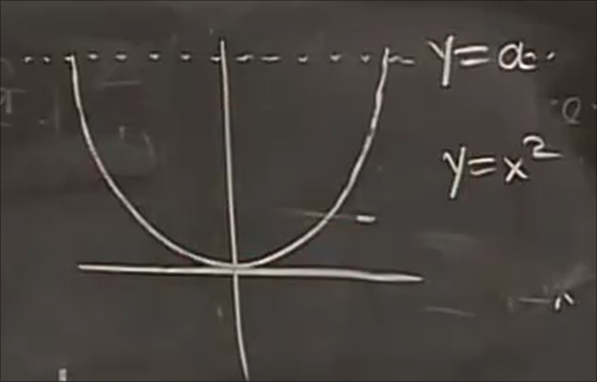 y=a
y=x²